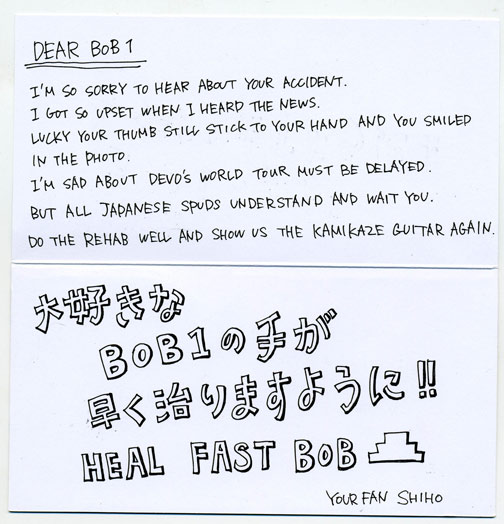 DEAR BOB 1
I'M SO SORRY TO HEAR ABOUT YOUR ACCIDENT.
I GOT SO UPSET WHEN I HEARD THE NEWS.
LUCKY YOUR THUMB STILL STICK TO YOUR HAND AND YOU SMILED
IN THE PHOTO.
I'M SAD ABOUT DEVO'S WORLD TOUR MUST BE DELAYED.
BUT ALL JAPANESE SPUDS UNDERSTAND AND WAIT YOU.
DO THE REHAB WELL AND SHOW US THE KAMIKAZE GUITAR AGAIN.
大好きな
BOB1の手が
早く治りますように!!
HEAL FAST BOB
YOUR FAN SHIHO